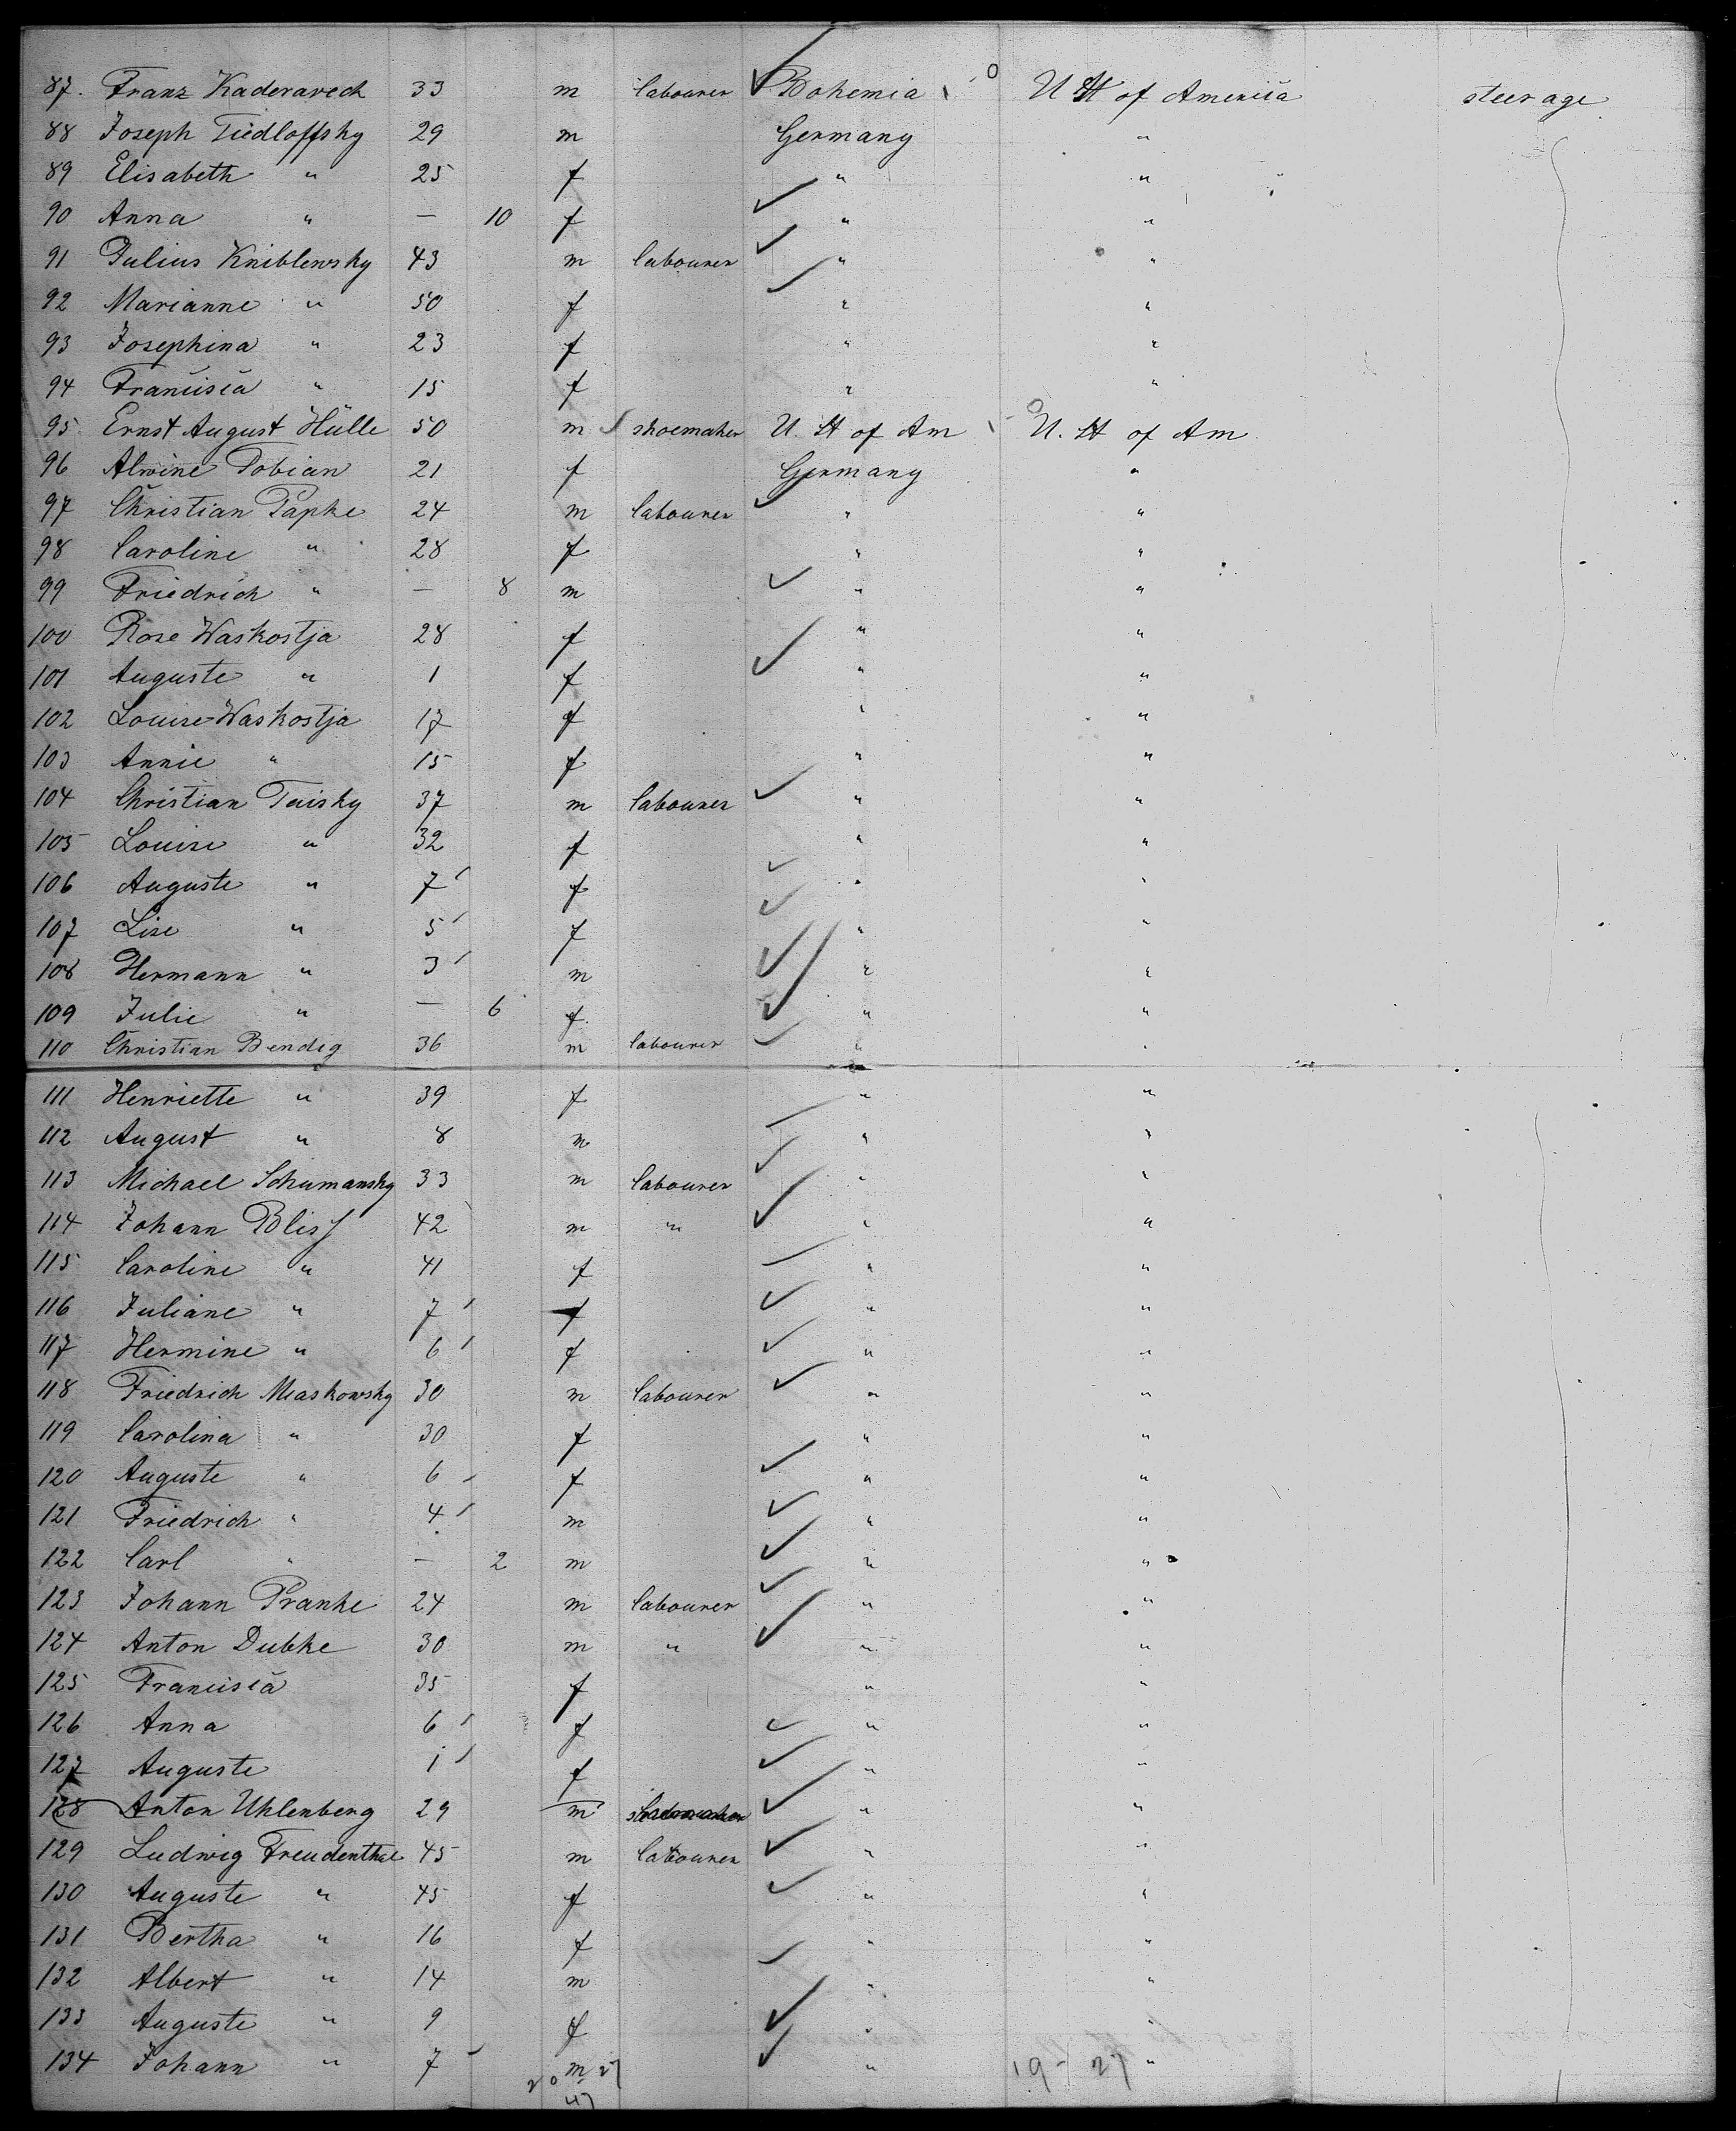 87. Franz Kaderavech 33 m labourer Bohemia U St of America steerage
88 Joseph Tiedloffsky 29 m Germany "
89 Elisabeth " 25 f " "
90 Anna " — 10 f " "
91 Julius Kniblewsky 43 m labourer " "
92 Marianne " 50 f " "
93 Josephina " 23 f " "
94 Francisca " 15 f " "
95 Ernst August Hülle 50 m shoemaker U. St of Am U. St of Am
96 Alwine Dobian 21 f Germany "
97 Christian Papke 24 m labourer " "
98 Caroline " 28 f " "
99 Friedrich " — 8 m " "
100 Rose Waskostja 28 f " "
101 Auguste " 1 f " "
102 Louise Waskostja 17 f " "
103 Annie " 15 f " "
104 Christian Taisky 37 m labourer " "
105 Louise " 32 f " "
106 Auguste " 7 f " "
107 Lise " 5 f " "
108 Hermann " 3 m " "
109 Julie " — 6 f. " "
110 Christian Bendig 36 m labourer " "
111 Henriette " 39 f " "
112 August " 8 m " "
113 Michael Schumansky 33 m labourer " "
114 Johann Bliss 42 m " " "
115 Caroline " 41 f " "
116 Juliane " 7 f " "
117 Hermine " 6 f " "
118 Friedrich Miaskowsky 30 m labourer " "
119 Carolina " 30 f " "
120 Auguste " 6 f " "
121 Friedrich " 4 m " "
122 Carl " — 2 m " "
123 Johann Pranke 24 m labourer " "
124 Anton Dubke 30 m " " "
125 Francisca 35 f " "
126 Anna 6 f " "
127 Auguste 1 f " "
128 Anton Uhlenberg 29 m " "
129 Ludwig Freudenthal 45 m labourer " "
130 Auguste " 45 f " "
131 Bertha " 16 f " "
132 Albert " 14 m " "
133 Auguste " 9 f " "
134 Johann " 7 m " "
20 27 19 - 27
47